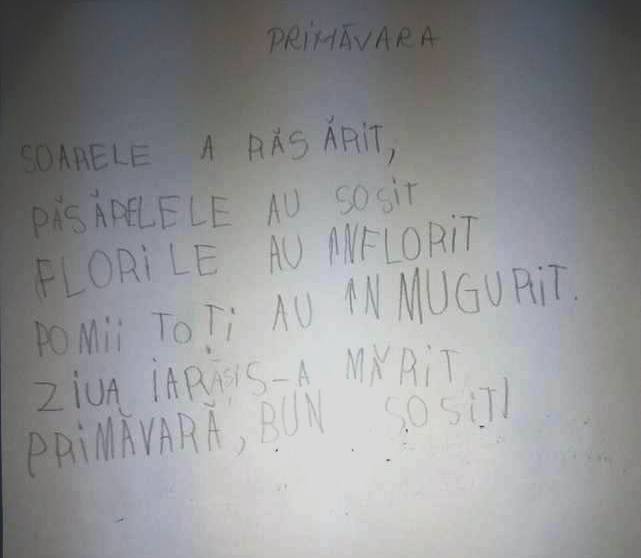 PRIMĂVARA
SOARELE A RĂSĂRIT,
PĂSĂRELELE AU SOSIT
FLORILE AU ÎNFLORIT
POMII TOȚI AU ÎN MUGURIT.
ZIUA IARĂȘI S-A MĂRIT
PRIMĂVARĂ, BUN SOSIT!